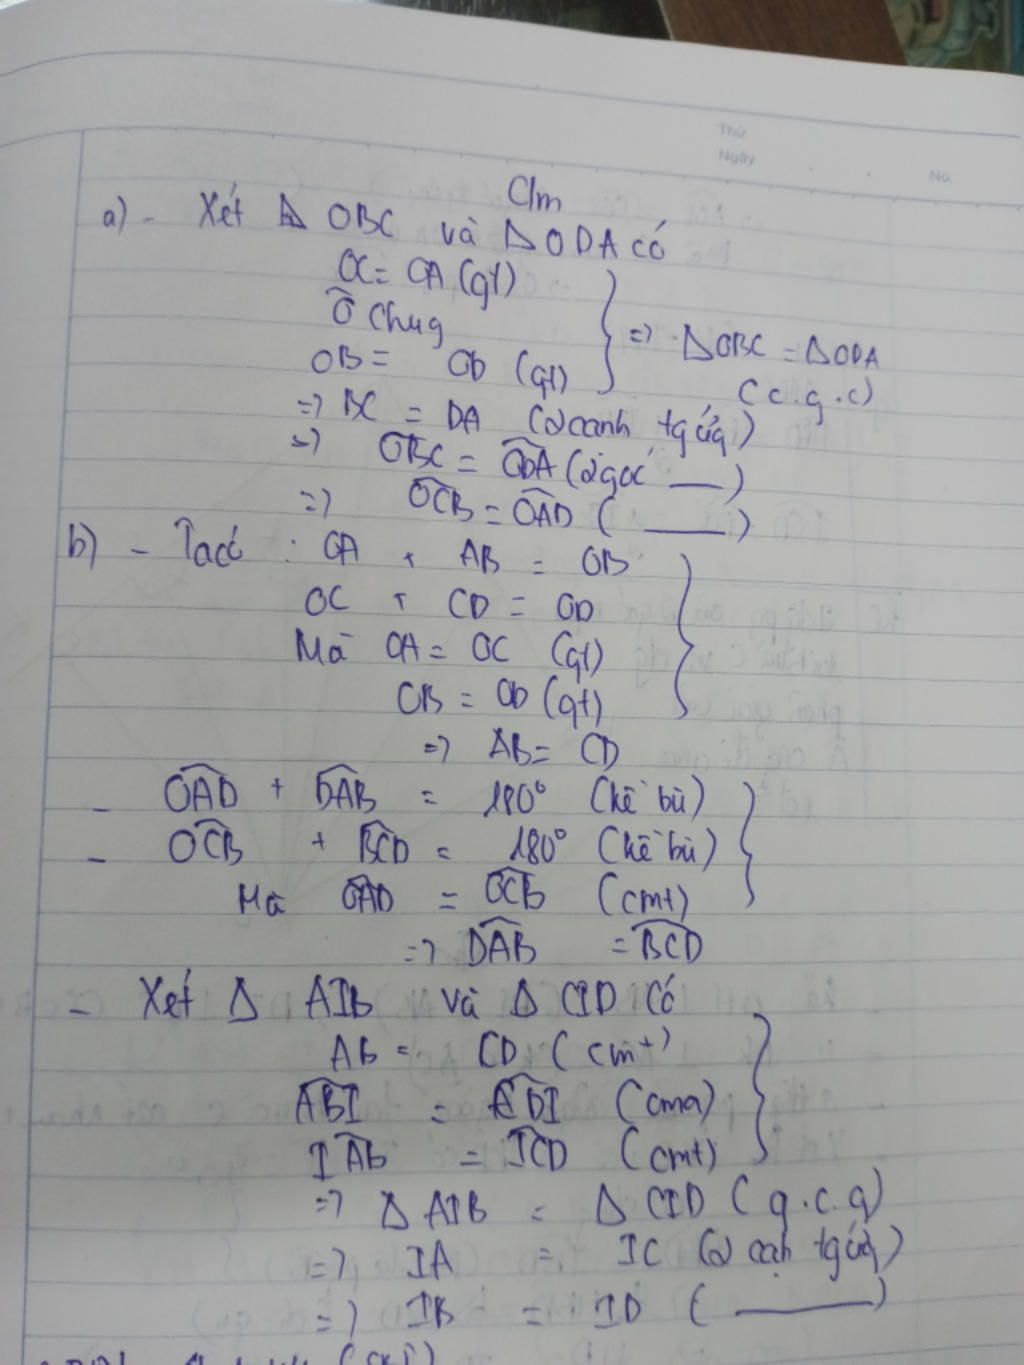 Thứ
Ngày
No.
Clm
a) - Xét Δ OBC và Δ ODA có
OC = OA (gt)
Ô chug
OB = OD (gt)
=> ΔOBC = ΔODA
(c.g.c)
=> BC = DA (2 cạnh tg ứg)
=> OBC = ODA (2 góc ___)
=> OCB = OAD ( ___ )
b) - Ta có : OA + AB = OB
OC + CD = OD
Mà OA = OC (gt)
OB = OD (gt)
=> AB = CD
- OAD + DAB = 180° (kề bù)
- OCB + BCD = 180° (kề bù)
Mà OAD = OCB (cmt)
=> DAB = BCD
- Xét Δ AIB và Δ CID có
AB = CD (cmt)
ABI = CDI (cma)
IAB = ICD (cmt)
=> Δ AIB = Δ CID (g.c.g)
=> IA = IC (2 cạh tg ứg)
=> IB = ID ( ___ )